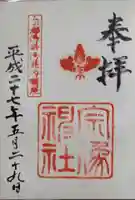 奉拝
宗像神社
平成二十七年五月二十九日